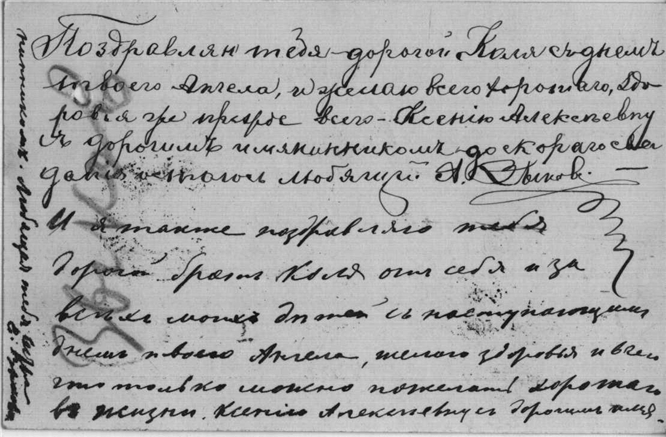 Поздравляю тебя дорогой Коля съ днемъ
твоего Ангела, и желаю всего хорошаго, здо
ровья же прежде всего - Ксенію Алексѣевну
съ дорогимъ имянинникомъ до скораго сви
данія остаюсь любящій А. Зыков.
И я также поздравляю тебя
дорогой братъ Коля отъ себя и за
всѣхъ моихъ дѣтей съ наступающимъ
днемъ твоего Ангела, желаю здоровья и всего
что только можно пожелать хорошаго
въ жизни. Ксенію Алексѣевну съ дорогимъ имя-
нинникомъ. Любящая тебя сестра
Зыкова